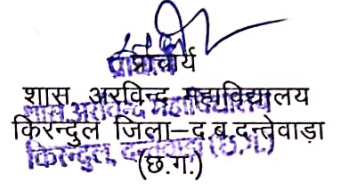 प्राचार्य
शास. अरविन्द महाविद्यालय
किरन्दुल जिला–द.ब.दन्तेवाड़ा
(छ.ग.)